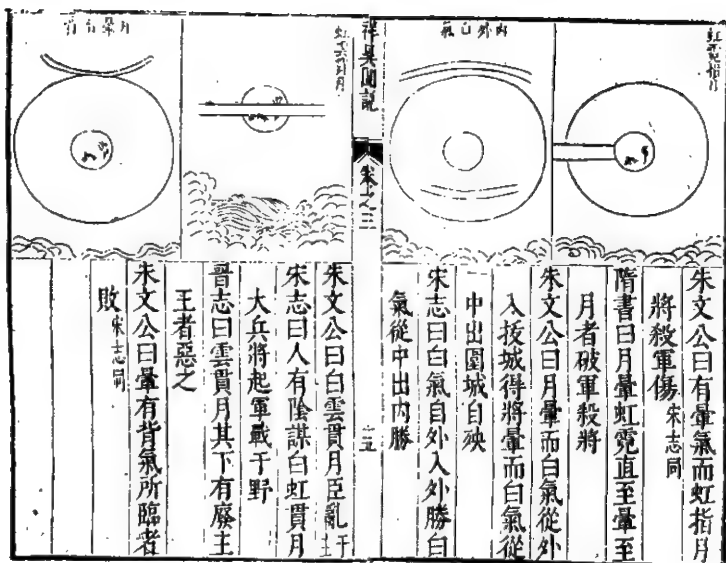 指月
內外白氣
朱文公曰有暈氣而虹指月
將殺軍傷 宋志同
隋書曰月暈虹霓直至暈至
月者破軍殺將
朱文公曰月暈而白氣從外
入拔城得將暈而白氣從
中出圍城自殃
宋志曰白氣自外入外勝白
氣從中出內勝
祥異圖說
之三
月暈有背
朱文公曰白雲貫月臣亂于主
宋志曰人有陰謀白虹貫月
大兵將起軍戰于野
晉志曰雲貫月其下有廢主
王者惡之
朱文公曰暈有背氣所臨者
敗 宋志同